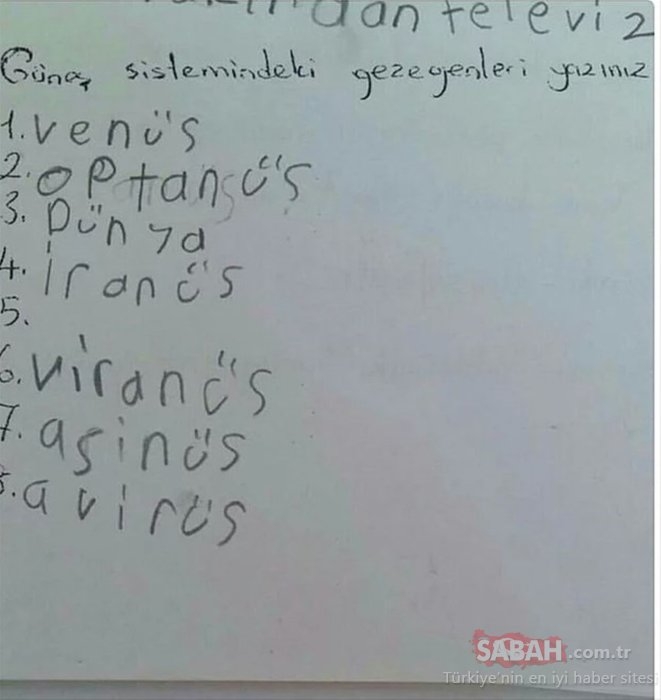 dan televiz
Güneş sistemindeki gezegenleri yazınız
1. venüs
2. optansüs
3. Dünya
4. İranüs
5.
6. viranüs
7. asinüs
8. avirüs
SABAH.com.tr
Türkiye'nin en iyi haber sitesi